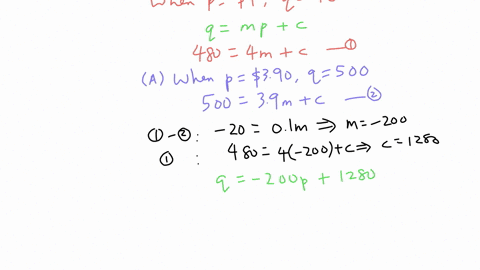 when p =
q = mp + c
480 = 4m + c —①
(A) when p = $3.90, q = 500
500 = 3.9m + c —②
①-②: -20 = 0.1m ⇒ m = -200
①: 480 = 4(-200) + c ⇒ c = 1280
q = -200p + 1280